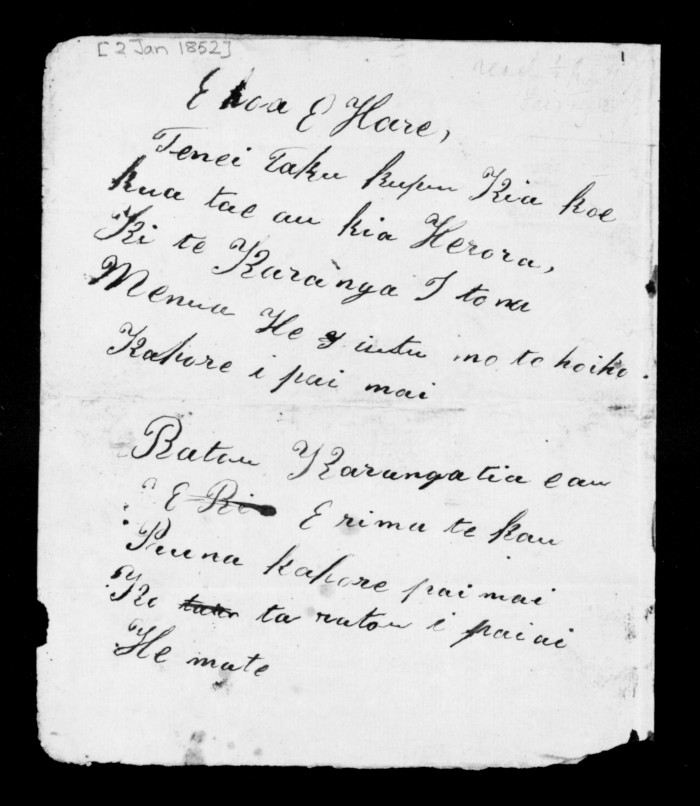 [2 Jan 1852]
E hoa E Hare,
Tenei Taku kupu Kia koe
kua tae au kia Herora,
Ki te Karanga I tona
Menua He utu mo te hoiho.
Kahore i pai mai
Ratou Karangatia e au
E Ri E rima te kau
Puna kahore pai mai
Ko ta ratou i paiai
He mate